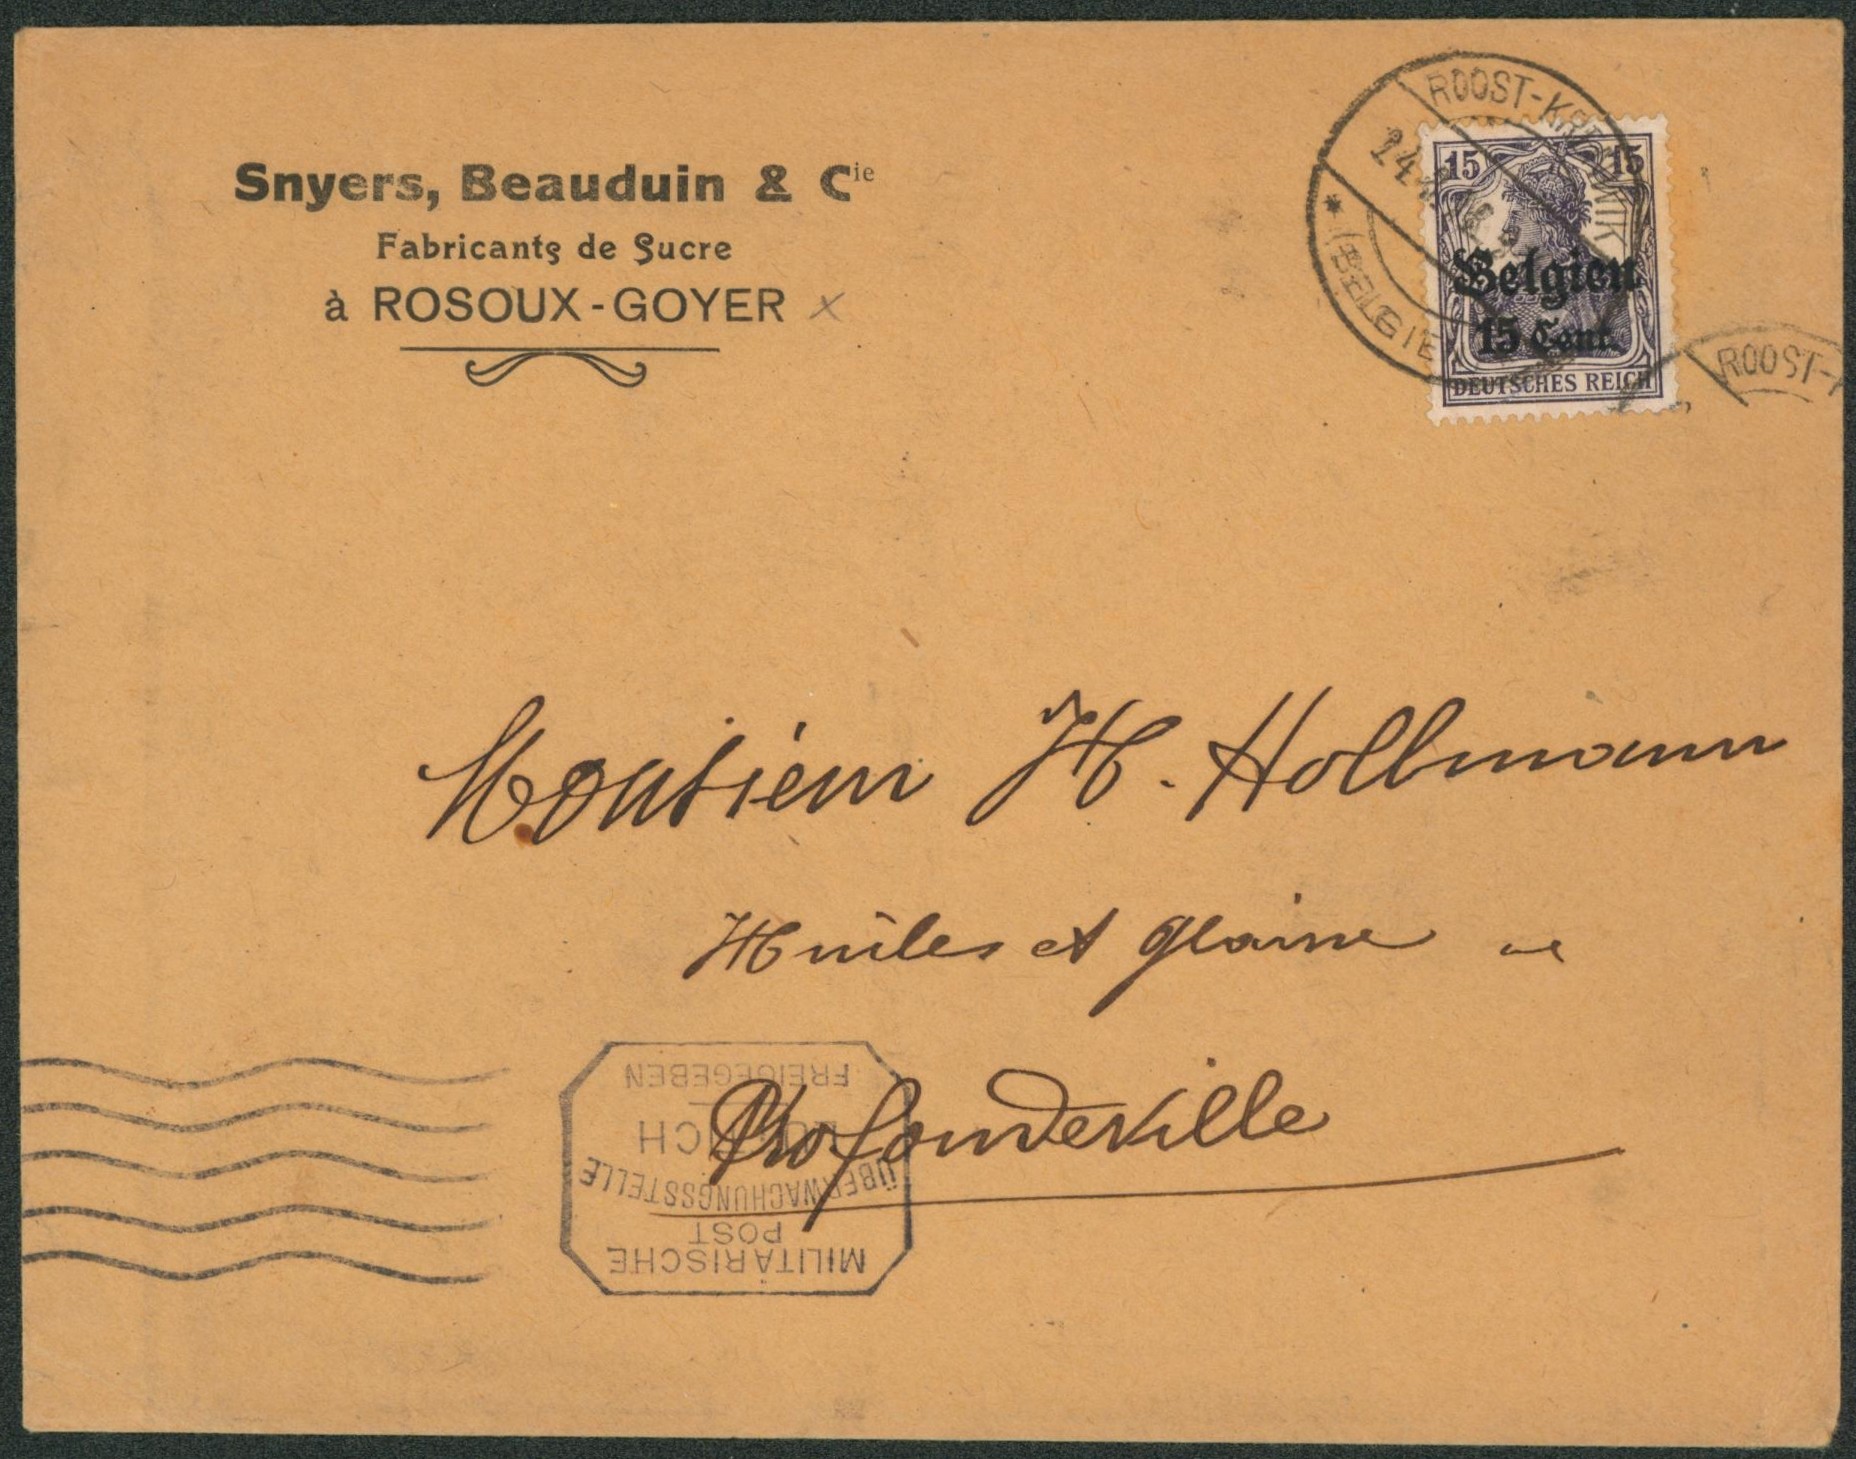 Snyers, Beauduin & Cie
Fabricants de Sucre
à ROSOUX-GOYER x
ROOST-KRENWIK
(BELGIE
15 15
Belgien
15 Cent.
DEUTSCHES REICH
ROOST-K
Monsieur H. Hollmann
Huiles et
Profondeville
MILITÄRISCHE
POST
ÜBERWACHUNGSSTELLE
FREIGEGEBEN